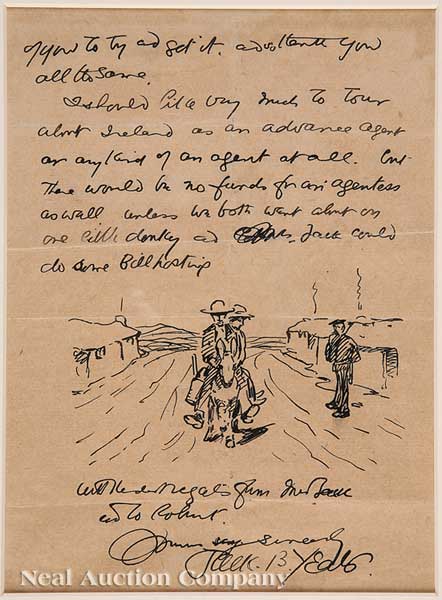 of you to try ad get it. ad thank you
all the same.
I should like very much to tour
about Ireland as an advance agent
or any kind of an agent at all. but
there would be no funds for an agentess
as well unless we both went about on
one little donkey ad Jack could
do some Bill posting
with kindest regards from Mrs Jack
ad to Robert.
Yours very sincerely
Jack. B. Yeats.
Neal Auction Company